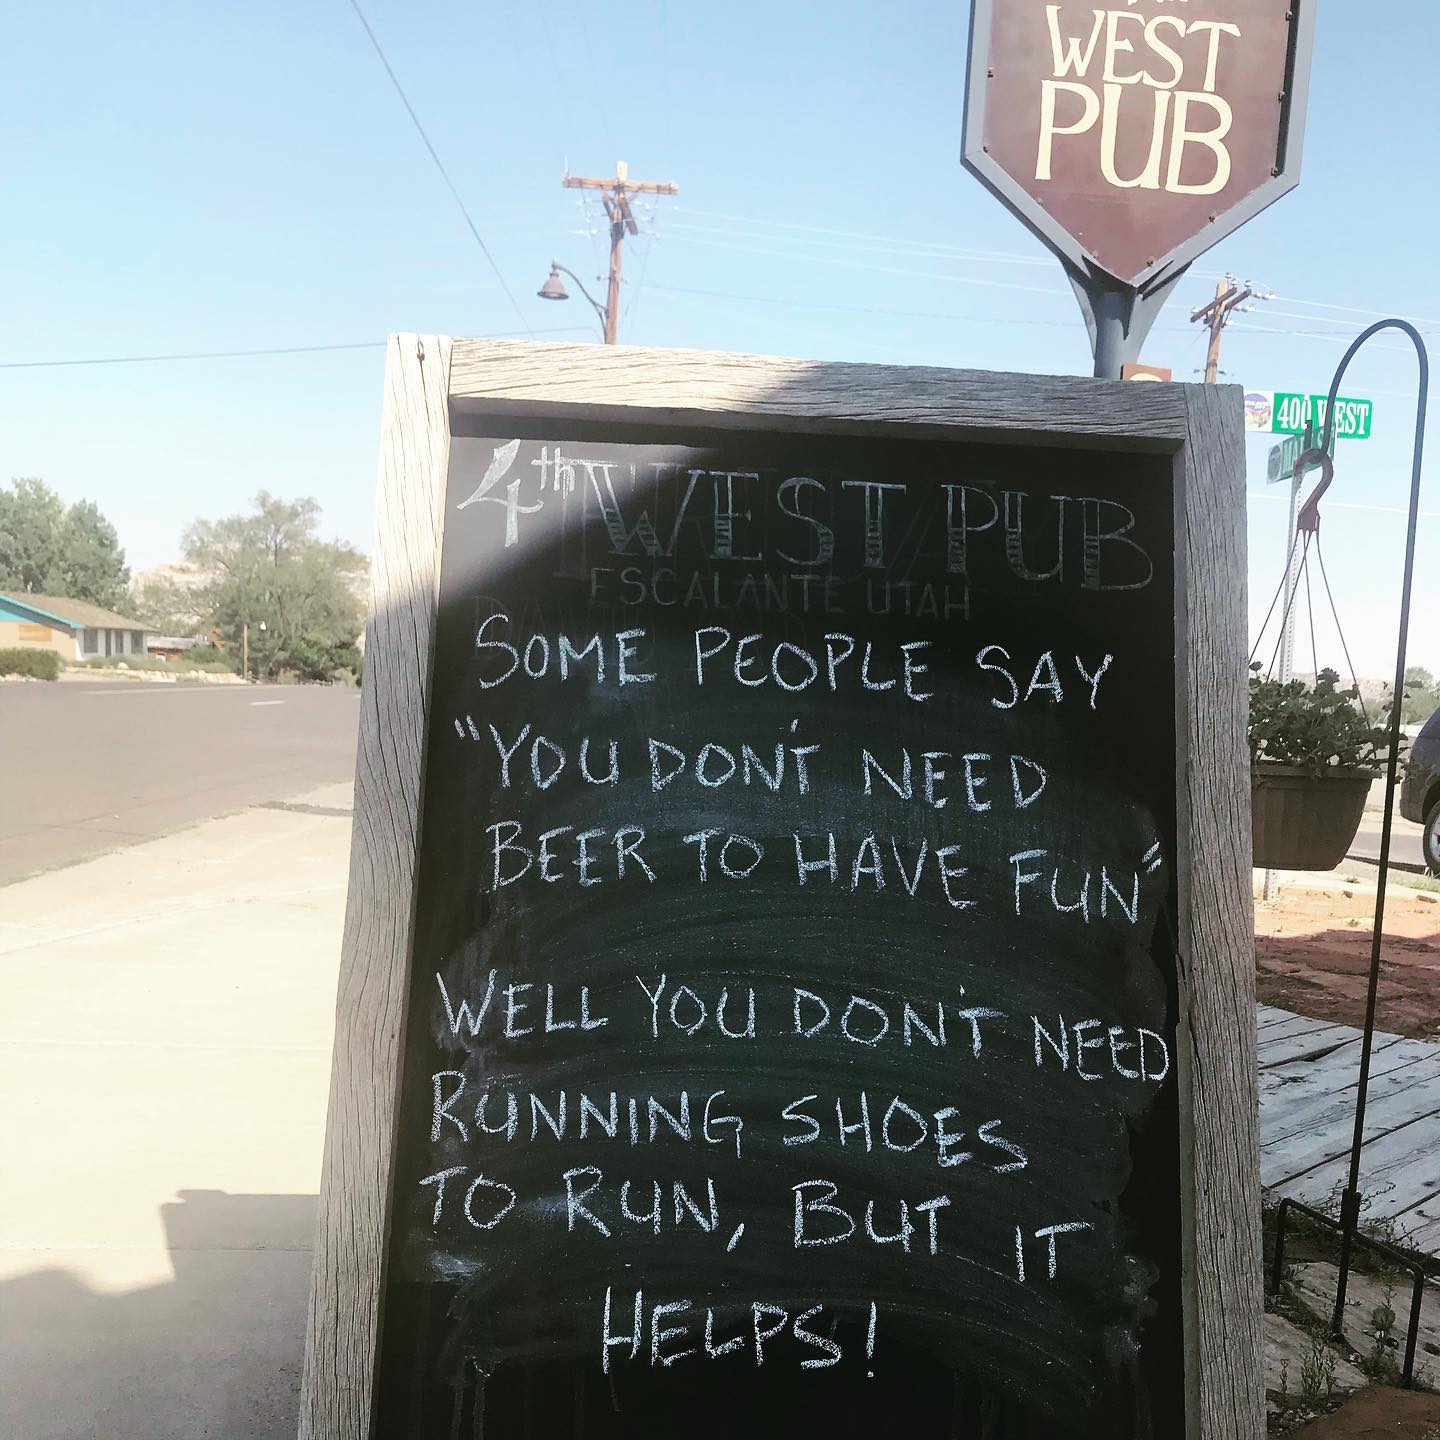 WEST
PUB
400 WEST
4th WEST PUB
ESCALANTE UTAH
SOME PEOPLE SAY
"YOU DON'T NEED
BEER TO HAVE FUN"
WELL YOU DON'T NEED
RUNNING SHOES
TO RUN, BUT IT
HELPS!